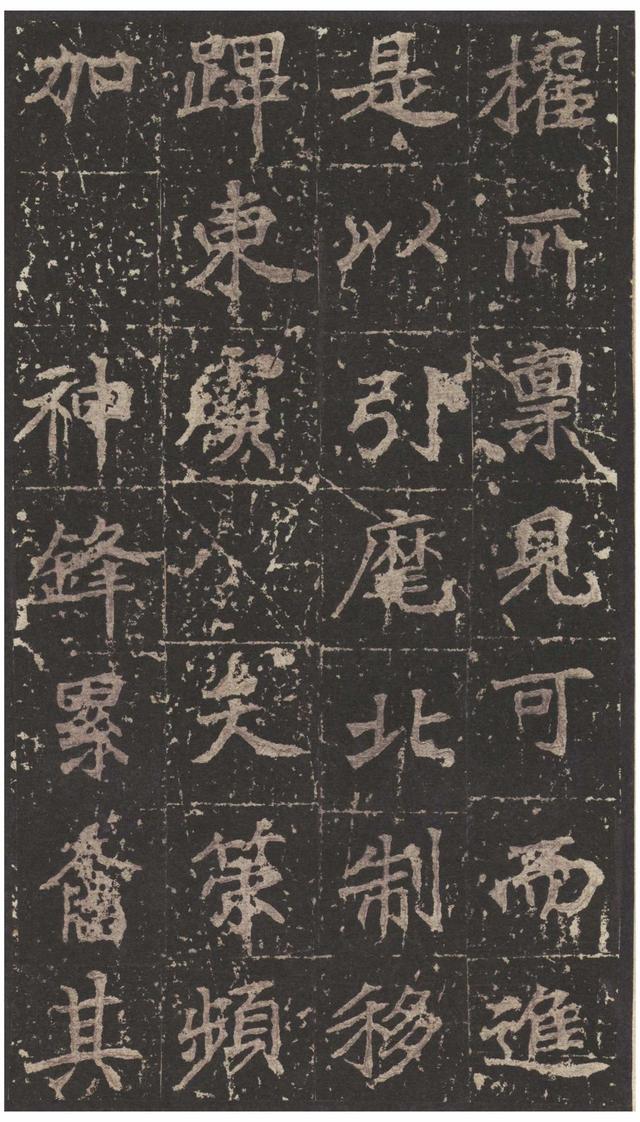 權所稟見可而進
是以引麾北制移
蹕東虞矣策頻
加神鋒累奮其